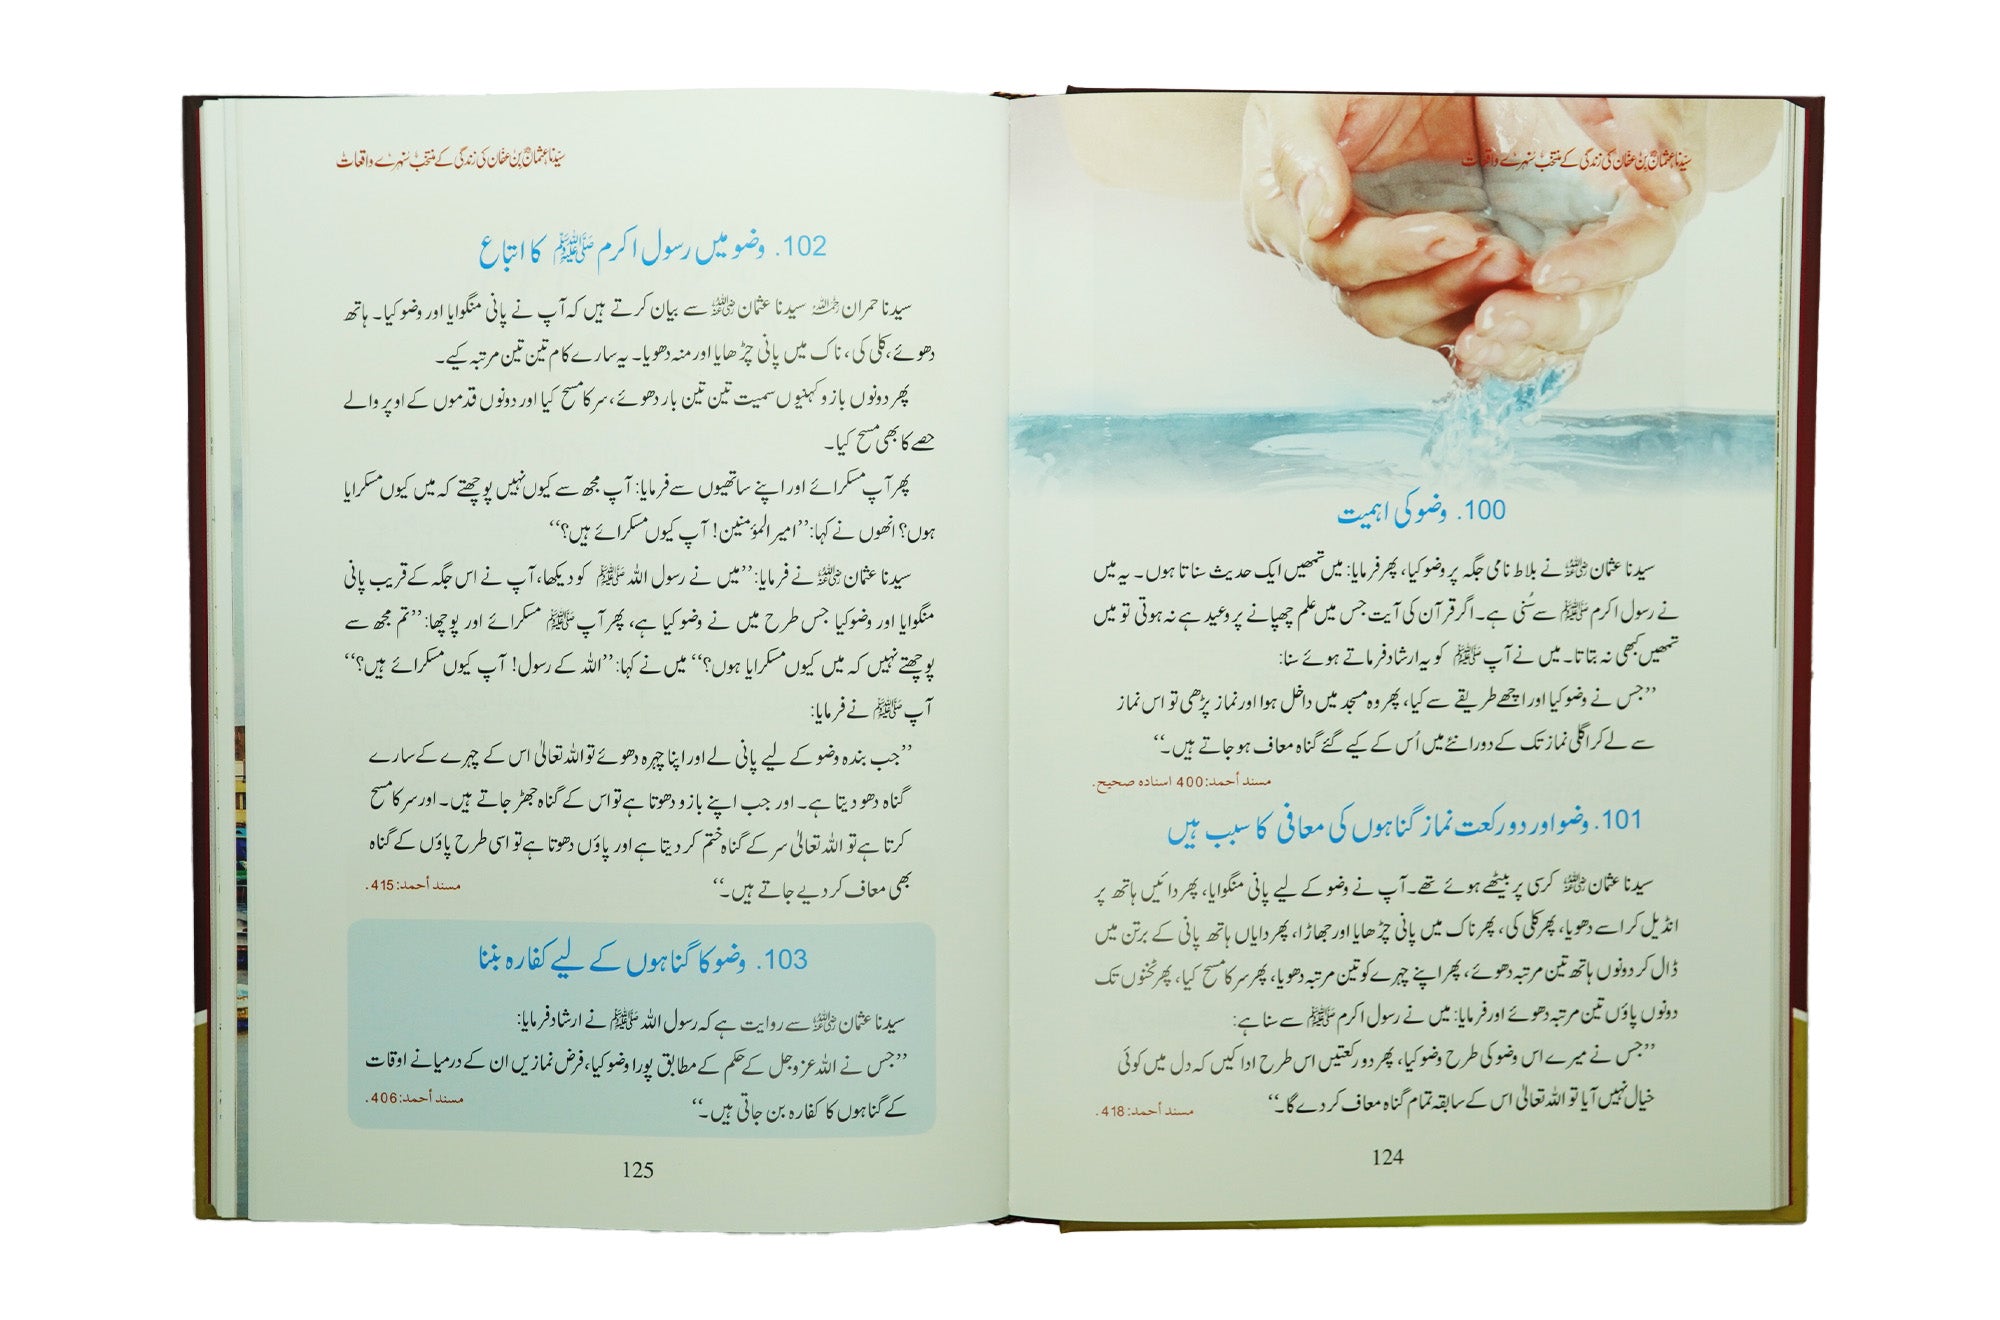 سیدنا عثمان بن عفان کی زندگی کے منتخب سنہرے واقعات
100. وضو کی اہمیت
سیدنا عثمان رضی اللہ عنہ نے بلاط نامی جگہ پر وضو کیا، پھر فرمایا: میں تمھیں ایک حدیث سناتا ہوں۔ یہ میں
نے رسول اکرم ﷺ سے سُنی ہے۔ اگر قرآن کی آیت جس میں علم چھپانے پر وعید ہے نہ ہوتی تو میں
تمھیں کبھی نہ بتاتا۔ میں نے آپ ﷺ کو یہ ارشاد فرماتے ہوئے سنا:
’’جس نے وضو کیا اور اچھے طریقے سے کیا، پھر وہ مسجد میں داخل ہوا اور نماز پڑھی تو اس نماز
سے لے کر اگلی نماز تک کے دورانئے میں اُس کے کیے گئے گناہ معاف ہو جاتے ہیں۔‘‘
مسند أحمد: 400 اسناده صحیح.
101. وضو اور دو رکعت نماز گناہوں کی معافی کا سبب ہیں
سیدنا عثمان رضی اللہ عنہ کرسی پر بیٹھے ہوئے تھے۔ آپ نے وضو کے لیے پانی منگوایا، پھر دائیں ہاتھ پر
انڈیل کر اسے دھویا، پھر کلی کی، پھر ناک میں پانی چڑھایا اور جھاڑا، پھر دایاں ہاتھ پانی کے برتن میں
ڈال کر دونوں ہاتھ تین مرتبہ دھوئے، پھر اپنے چہرے کو تین مرتبہ دھویا، پھر سر کا مسح کیا، پھر ٹخنوں تک
دونوں پاؤں تین مرتبہ دھوئے اور فرمایا: میں نے رسول اکرم ﷺ سے سنا ہے:
’’جس نے میرے اس وضو کی طرح وضو کیا، پھر دو رکعتیں اس طرح ادا کیں کہ دل میں کوئی
خیال نہیں آیا تو اللہ تعالیٰ اس کے سابقہ تمام گناہ معاف کر دے گا۔‘‘
مسند أحمد: 418.
124
سیدنا عثمان بن عفان کی زندگی کے منتخب سنہرے واقعات
102. وضو میں رسول اکرم ﷺ کا اتباع
سیدنا حمران رحمہ اللہ سیدنا عثمان رضی اللہ عنہ سے بیان کرتے ہیں کہ آپ نے پانی منگوایا اور وضو کیا۔ ہاتھ
دھوئے، کلی کی، ناک میں پانی چڑھایا اور منہ دھویا۔ یہ سارے کام تین تین مرتبہ کیے۔
پھر دونوں بازو کہنیوں سمیت تین تین بار دھوئے، سر کا مسح کیا اور دونوں قدموں کے اوپر والے
حصے کا بھی مسح کیا۔
پھر آپ مسکرائے اور اپنے ساتھیوں سے فرمایا: آپ مجھ سے کیوں نہیں پوچھتے کہ میں کیوں مسکرایا
ہوں؟ انھوں نے کہا: ’’امیر المؤمنین! آپ کیوں مسکرائے ہیں؟‘‘
سیدنا عثمان رضی اللہ عنہ نے فرمایا: ’’میں نے رسول اللہ ﷺ کو دیکھا، آپ نے اس جگہ کے قریب پانی
منگوایا اور وضو کیا جس طرح میں نے وضو کیا ہے، پھر آپ ﷺ مسکرائے اور پوچھا: ’’تم مجھ سے
پوچھتے نہیں کہ میں کیوں مسکرایا ہوں؟‘‘ میں نے کہا: ’’اللہ کے رسول! آپ کیوں مسکرائے ہیں؟‘‘
آپ ﷺ نے فرمایا:
’’جب بندہ وضو کے لیے پانی لے اور اپنا چہرہ دھوئے تو اللہ تعالیٰ اس کے چہرے کے سارے
گناہ دھو دیتا ہے۔ اور جب اپنے بازو دھوتا ہے تو اس کے گناہ جھڑ جاتے ہیں۔ اور سر کا مسح
کرتا ہے تو اللہ تعالیٰ سر کے گناہ ختم کر دیتا ہے اور پاؤں دھوتا ہے تو اسی طرح پاؤں کے گناہ
بھی معاف کر دیے جاتے ہیں۔‘‘ مسند أحمد: 415.
103. وضو کا گناہوں کے لیے کفارہ بننا
سیدنا عثمان رضی اللہ عنہ سے روایت ہے کہ رسول اللہ ﷺ نے ارشاد فرمایا:
’’جس نے اللہ عزوجل کے حکم کے مطابق پورا وضو کیا، فرض نمازیں ان کے درمیانے اوقات
کے گناہوں کا کفارہ بن جاتی ہیں۔‘‘ مسند أحمد: 406.
125